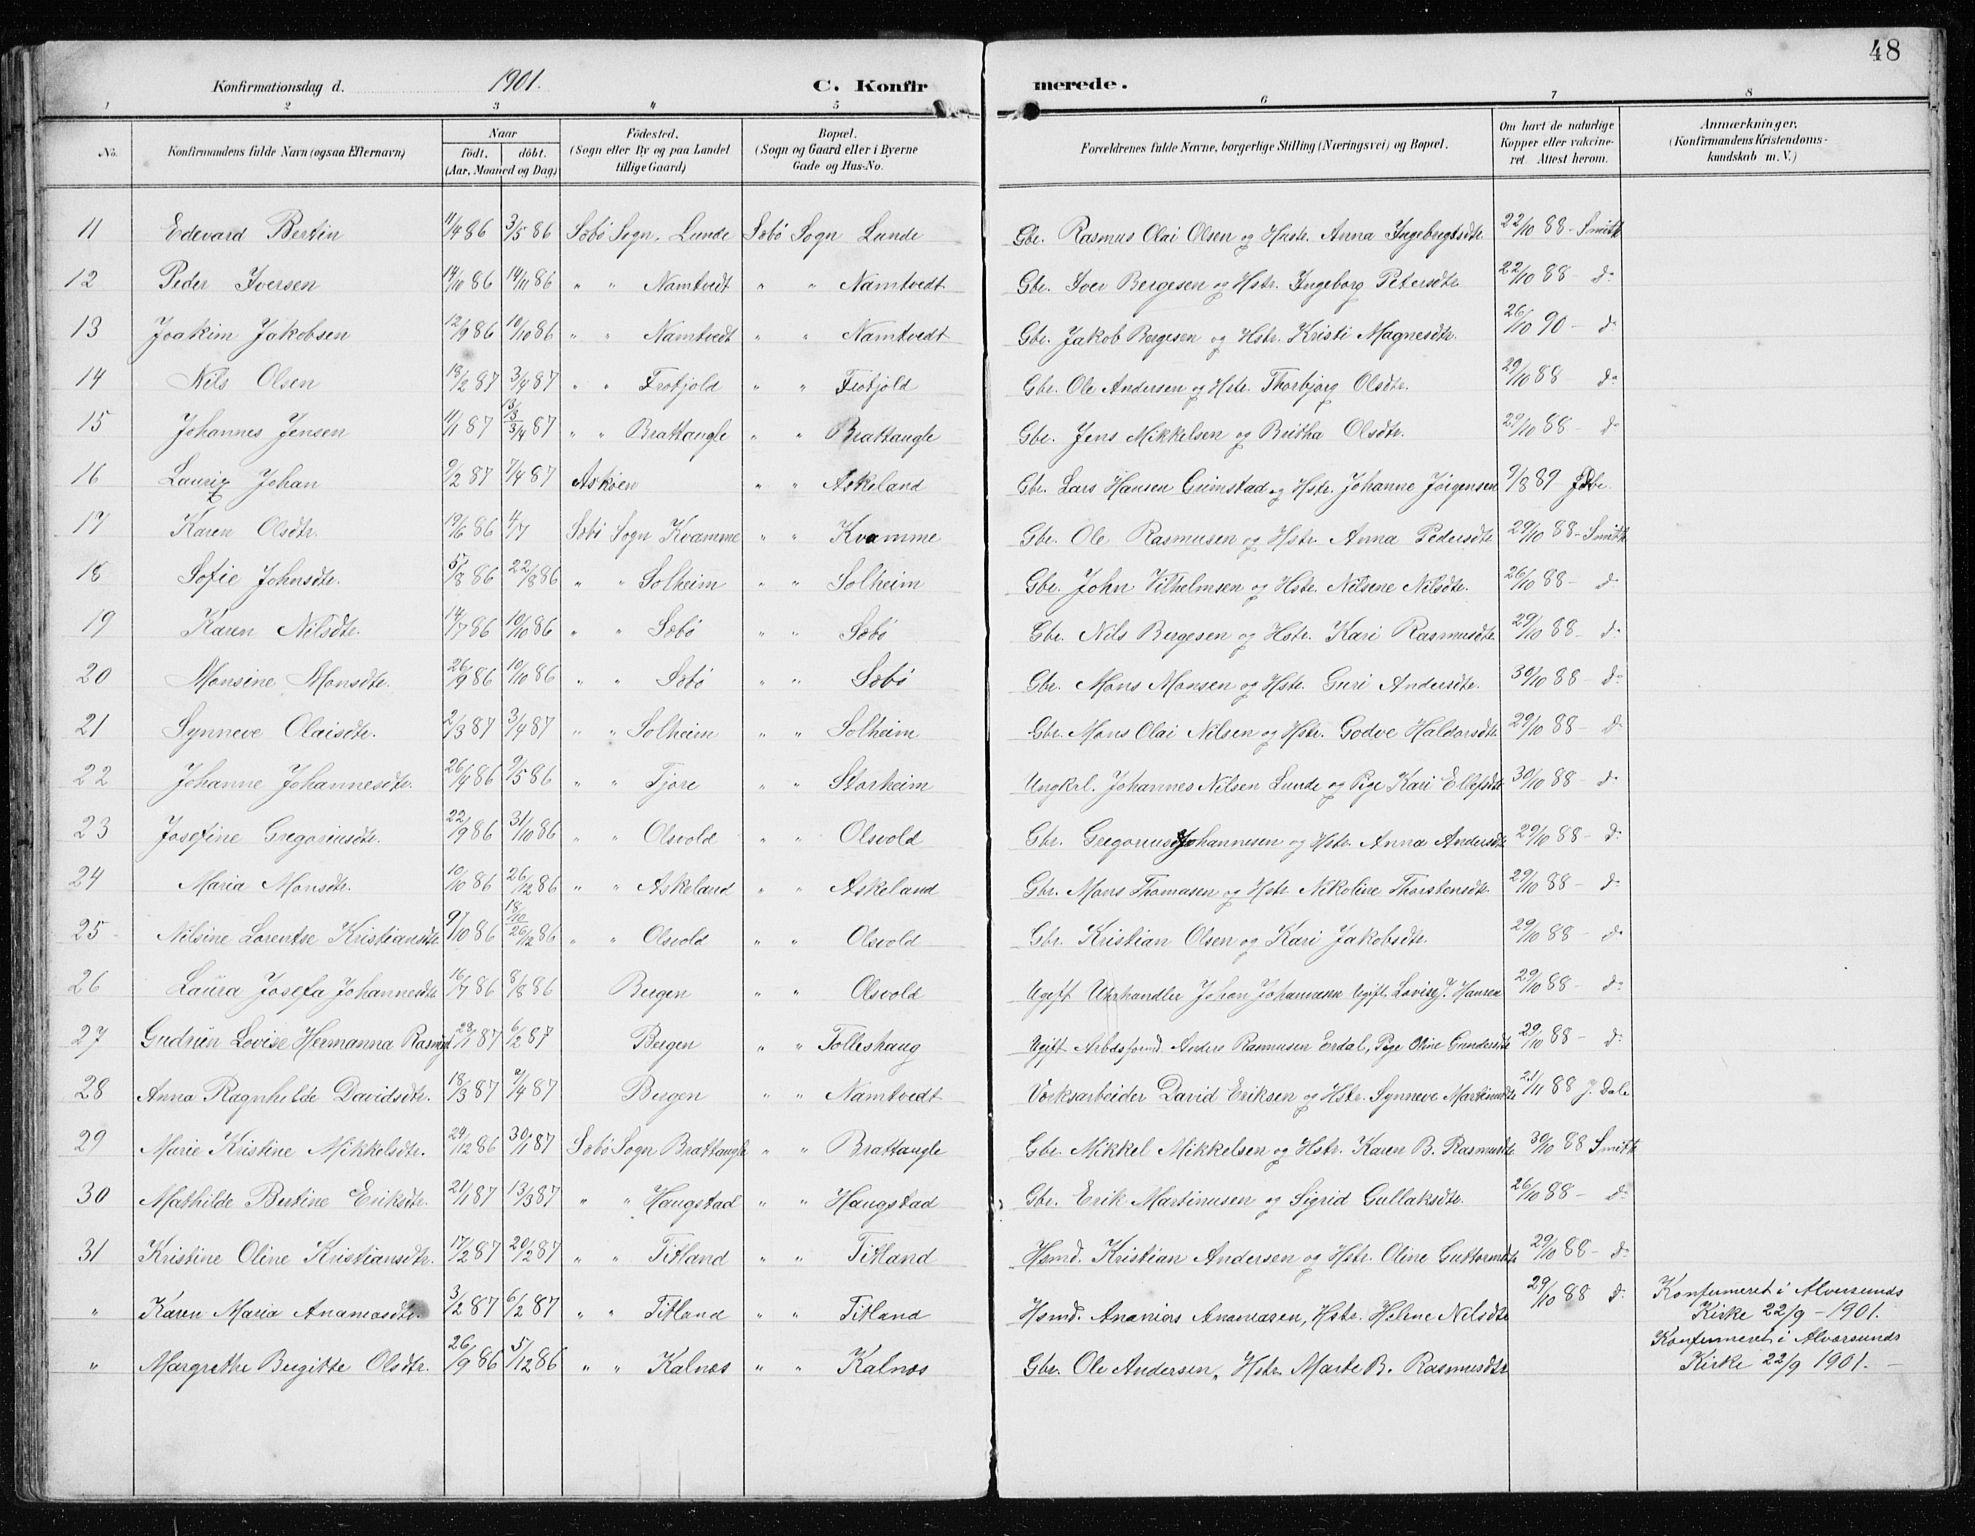 48
Konfirmationsdag d. 1901. C. Konfirmerede.
1 2 3 4 5 6 7 8
No. Konfirmandens fulde Navn (ogsaa Efternavn) Naar födt. döbt. (Aar, Maaned og Dag) Födested. (Sogn eller By og paa Landet tillige Gaard) Bopæl. (Sogn og Gaard eller i Byerne Gade og Hus-No. Forældrenes fulde Navne, borgerlige Stilling (Næringsvei) og Bopæl. Om havt de naturlige Kopper eller vakcineret. Attest herom. Anmærkninger. (Konfirmandens Kristendomskundskab m. V.)
11 Edevard Bertin 11/4 86 3/5 86 Sæbö Sogn. Lunde Sæbö Sogn Lunde Gbr. Rasmus Olai Olsen og Hustr. Anna Ingebrigtsdtr 22/10 88 - Smitt
12 Peder Iversen 14/10 86 14/11 86 " " Namtvedt " " Namtvedt Gbr. Iver Bergesen og Hstr. Ingeborg Petersdtr 22/10 88 - do
13 Joakim Jakobsen 12/9 86 10/10 86 " " Namtvedt " " Namtvedt Gbr. Jakob Bergesen og Hstr. Kristi Magnesdtr. 26/10 90 - do
14 Nils Olsen 13/2 87 3/4 87 " " Frotjold " " Frotjold Gbr. Ole Andersen og Hstr. Thorbjorg Olsdtr. 29/10 88 do
15 Johannes Jensen 11/1 87 13/3 3/4 87 " " Brattaugle " " Brattaugle Gbr. Jens Mikkelsen og Britha Olsdtr. 29/10 88 - do
16 Lauriz Johan 9/2 87 7/4 87 Asköen " " Askeland Gbr. Lars Hansen Grimstad og Hstr. Johanne Jörgensen 9/8 89
17 Karen Olsdtr. 19/6 86 4/7 Sæbö Sogn Kvamme " " Kvamme Gbr. Ole Rasmusen og Hstr. Anna Pedersdtr 29/10 88 - Smitt
18 Sofie Johnsdtr. 5/8 86 22/8 86 " " Solheim " " Solheim Gbr. John Vilhelmsen og Hstr. Nilsine Nilsdtr. 26/10 88 - do
19 Karen Nilsdtr. 14/7 86 10/10 86 " " Sæbö " " Sæbö Gbr. Nils Bergesen og Hstr. Kari Rasmusdtr. 29/10 88 - do
20 Monsine Monsdtr. 26/9 86 10/10 86 " " Sæbö " " Sæbö Gbr. Mons Monsen og Hstr. Guri Andersdtr. 30/10 88 - do
21 Synneve Olaisdtr. 2/3 87 3/4 87 " " Solheim " " Solheim Gbr. Mons Olai Nilsen og Hstr. Godve Haldorsdtr 29/10 88 - do
22 Johanne Johannesdtr. 26/4 86 9/5 86 " " Fjöre " " Storheim Ungkrl. Johannes Nilsen Lunde og Pige Kari Ellefsdtr 30/10 88 - do
23 Josefine Gregoriusdtr. 22/9 86 31/10 86 " " Olsvold " " Olsvold Gbr. Gregorius Johannesen og Hstr. Anna Andersdtr 29/10 88 - do
24 Maria Monsdtr. 10/10 86 26/12 86 " " Askeland " " Askeland Gbr. Mons Thomasen og Hstr. Nikoline Thorstensdtr. 29/10 88 - do
25 Nilsine Lorentse Kristiansdtr 9/10 86 18/10 26/12 86 " " Olsvold " " Olsvold Gbr. Kristian Olsen og Kari Jakobsdtr. 29/10 88 - do
26 Laura Josefa Johannesdtr 16/7 86 8/8 86 Bergen " " Olsvold Ugift Uhrhandler Johan Johannesen Ugift. Lovise J. Hansen 29/10 88 - do
27 Gudrun Lovise Hermanna 6/2 87 Bergen " " Tolleshaug Ugift Anders Rasmusen Erdal, Pige Oline Gundersdtr 29/10 88 - do
28 Anna Ragnhilde Davidsdtr. 18/3 87 9/4 87 Bergen " " Namtvedt Værksarbeider David Eriksen og Hstr. Synneve Martinusdtr 21/11 88 J. Dale
29 Marie Kristine Mikkelsdtr. 29/12 86 30/1 87 Sæbö Sogn Brattaugle " " Brattaugle Gbr. Mikkel Mikkelsen og Hstr. Karen B. Rasmusdtr 30/10 88 Smitt
30 Mathilde Bertine Eriksdtr. 21/1 87 13/3 87 " " Haugstad " " Haugstad Gbr. Erik Martinusen og Sigrid Gullaksdtr. 26/10 88 - do
31 Kristine Oline Kristiansdtr. 17/2 87 20/2 87 " " Titland " " Titland Hsmd. Kristian Andersen og Hstr. Oline Guttormsdtr 29/10 88 - do
" Karen Maria Ananiasdtr 3/2 87 6/2 87 " " Titland " " Titland Hsmd. Ananias Ananiasen, Hstr. Helene Nilsdtr 29/10 88 do Konfirmeret i Alversunds Kirke 22/9 - 1901.
" Margrethe Bergitte Olsdtr. 26/9 86 5/12 86 " " Kalnæs " " Kalnæs Gbr. Ole Andersen, Hstr. Marte B. Rasmusdtr Konfirmeret i Alversunds Kirke 22/9 1901. -